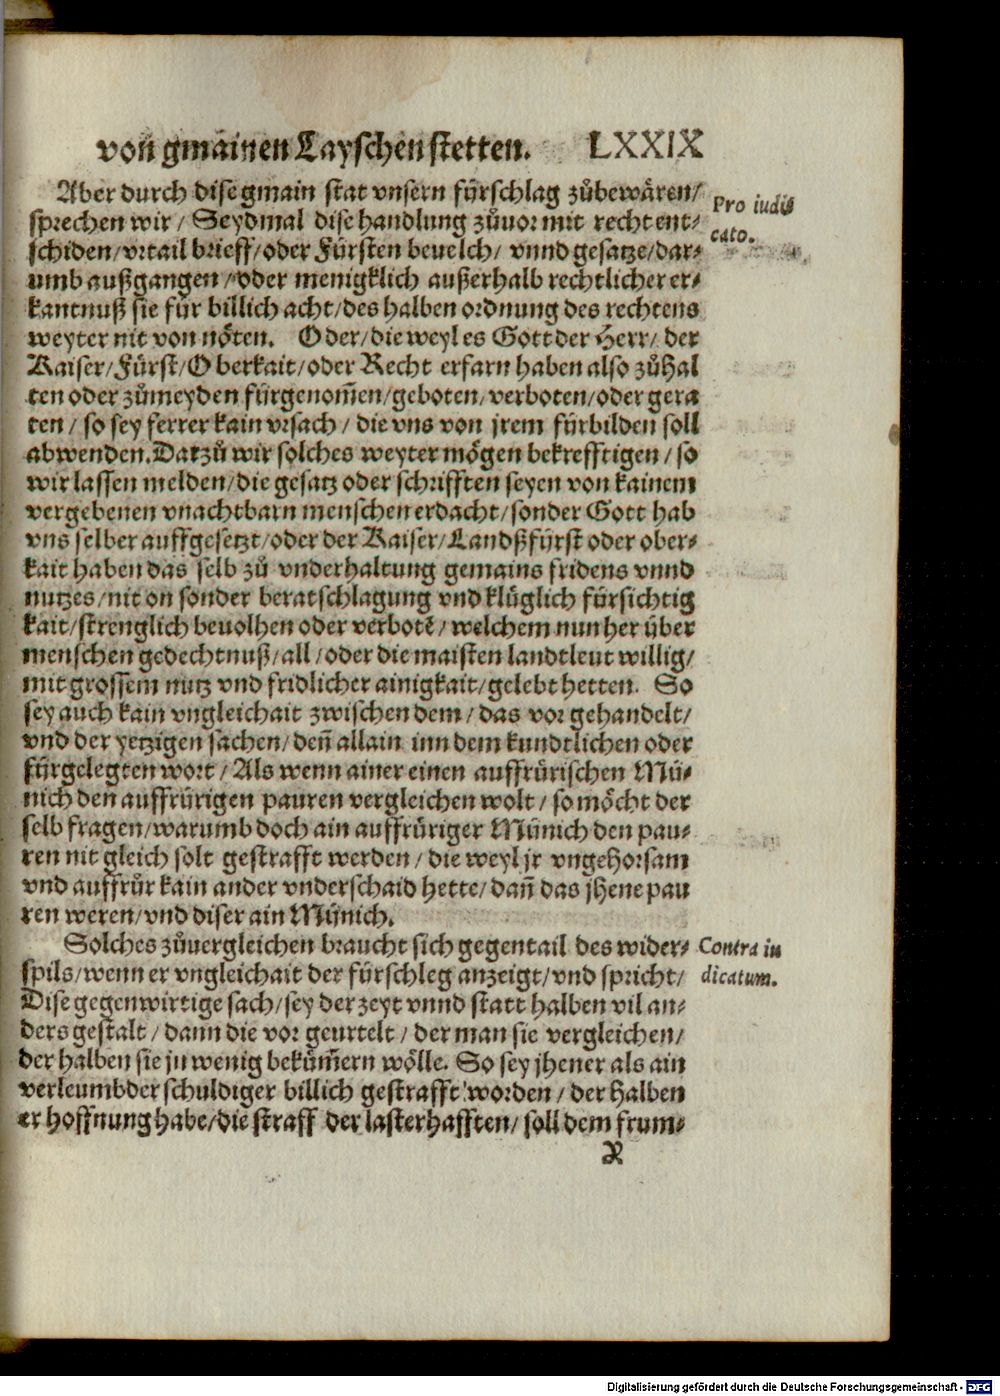 von gmainen Layschen stetten. LXXIX
Aber durch dise gmain stat vnsern fürschlag zůbewären/
Pro iudi-
sprechen wir / Seydmal dise handlung zůuor mit recht ent-
cato.
schiden/vrtail brieff/oder Fürsten beuelch/ vnnd gesatze/dar-
umb außgangen / oder menigklich außerhalb rechtlicher er-
kantnuß sie für billich acht/des halben ordnung des rechtens
weyter nit von nöten. Oder/die weyl es Gott der Herr/ der
Kaiser/Fürst/Oberkait/oder Recht erfarn haben also zůhal
ten oder zůmeyden fürgenom̄en/geboten/verboten/oder gera
ten / so sey ferrer kain vrsach / die vns von jrem fürbilden soll
abwenden. Darzů wir solches weyter mögen bekrefftigen / so
wir lassen melden/die gesatz oder schrifften seyen von kainem
vergebenen vnachtbarn menschen erdacht/sonder Gott hab
vns selber auffgesetzt/oder der Kaiser/Landßfürst oder ober-
kait haben das selb zů vnderhaltung gemains fridens vnnd
nutzes/nit on sonder beratschlagung vnd klüglich fürsichtig
kait/strenglich beuolhen oder verbotē / welchem nun her über
menschen gedechtnuß/all / oder die maisten landtleut willig/
mit grossem nutz vnd fridlicher ainigkait/gelebt hetten. So
sey auch kain vngleichait zwischen dem / das vor gehandelt/
vnd der yetzigen sachen/ deñ allain inn dem kundtlichen oder
fürgelegten wort / Als wenn ainer einen auffrürischen Mü-
nich den auffrürigen pauren vergleichen wolt / so möcht der
selb fragen/warumb doch ain auffrüriger Münich den pau-
ren nit gleich solt gestrafft werden / die weyl jr vngehorsam
vnd auffrůr kain ander vnderschaid hette/ dañ das jhene pau
ren weren/vnd diser ain Münich.
Solches zůuergleichen braucht sich gegentail des wider-
Contra iu
spils/wenn er vngleichait der fürschleg anzeigt/vnd spricht/
dicatum.
Dise gegenwirtige sach/sey der zeyt vnnd statt halben vil an-
ders gestalt / dann die vor geurtelt / der man sie vergleichen/
der halben sie jn wenig beküm̄ern wölle. So sey jhener als ain
verleumbder schuldiger billich gestrafft worden / der halben
er hoffnung habe/die straff der lasterhafften/ soll dem frum-
X
Digitalisierung gefördert durch die Deutsche Forschungsgemeinschaft - DFG